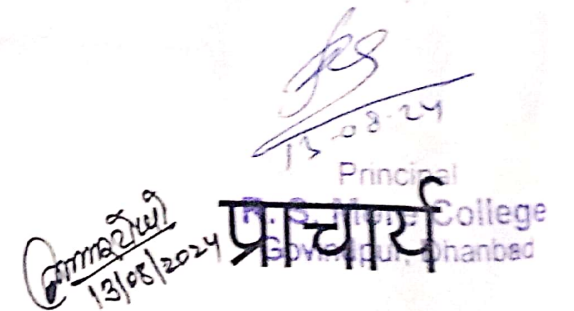 13-08-24
Principal
R. S. More College
Govindpur, Dhanbad
प्राचार्य
13/08/2024